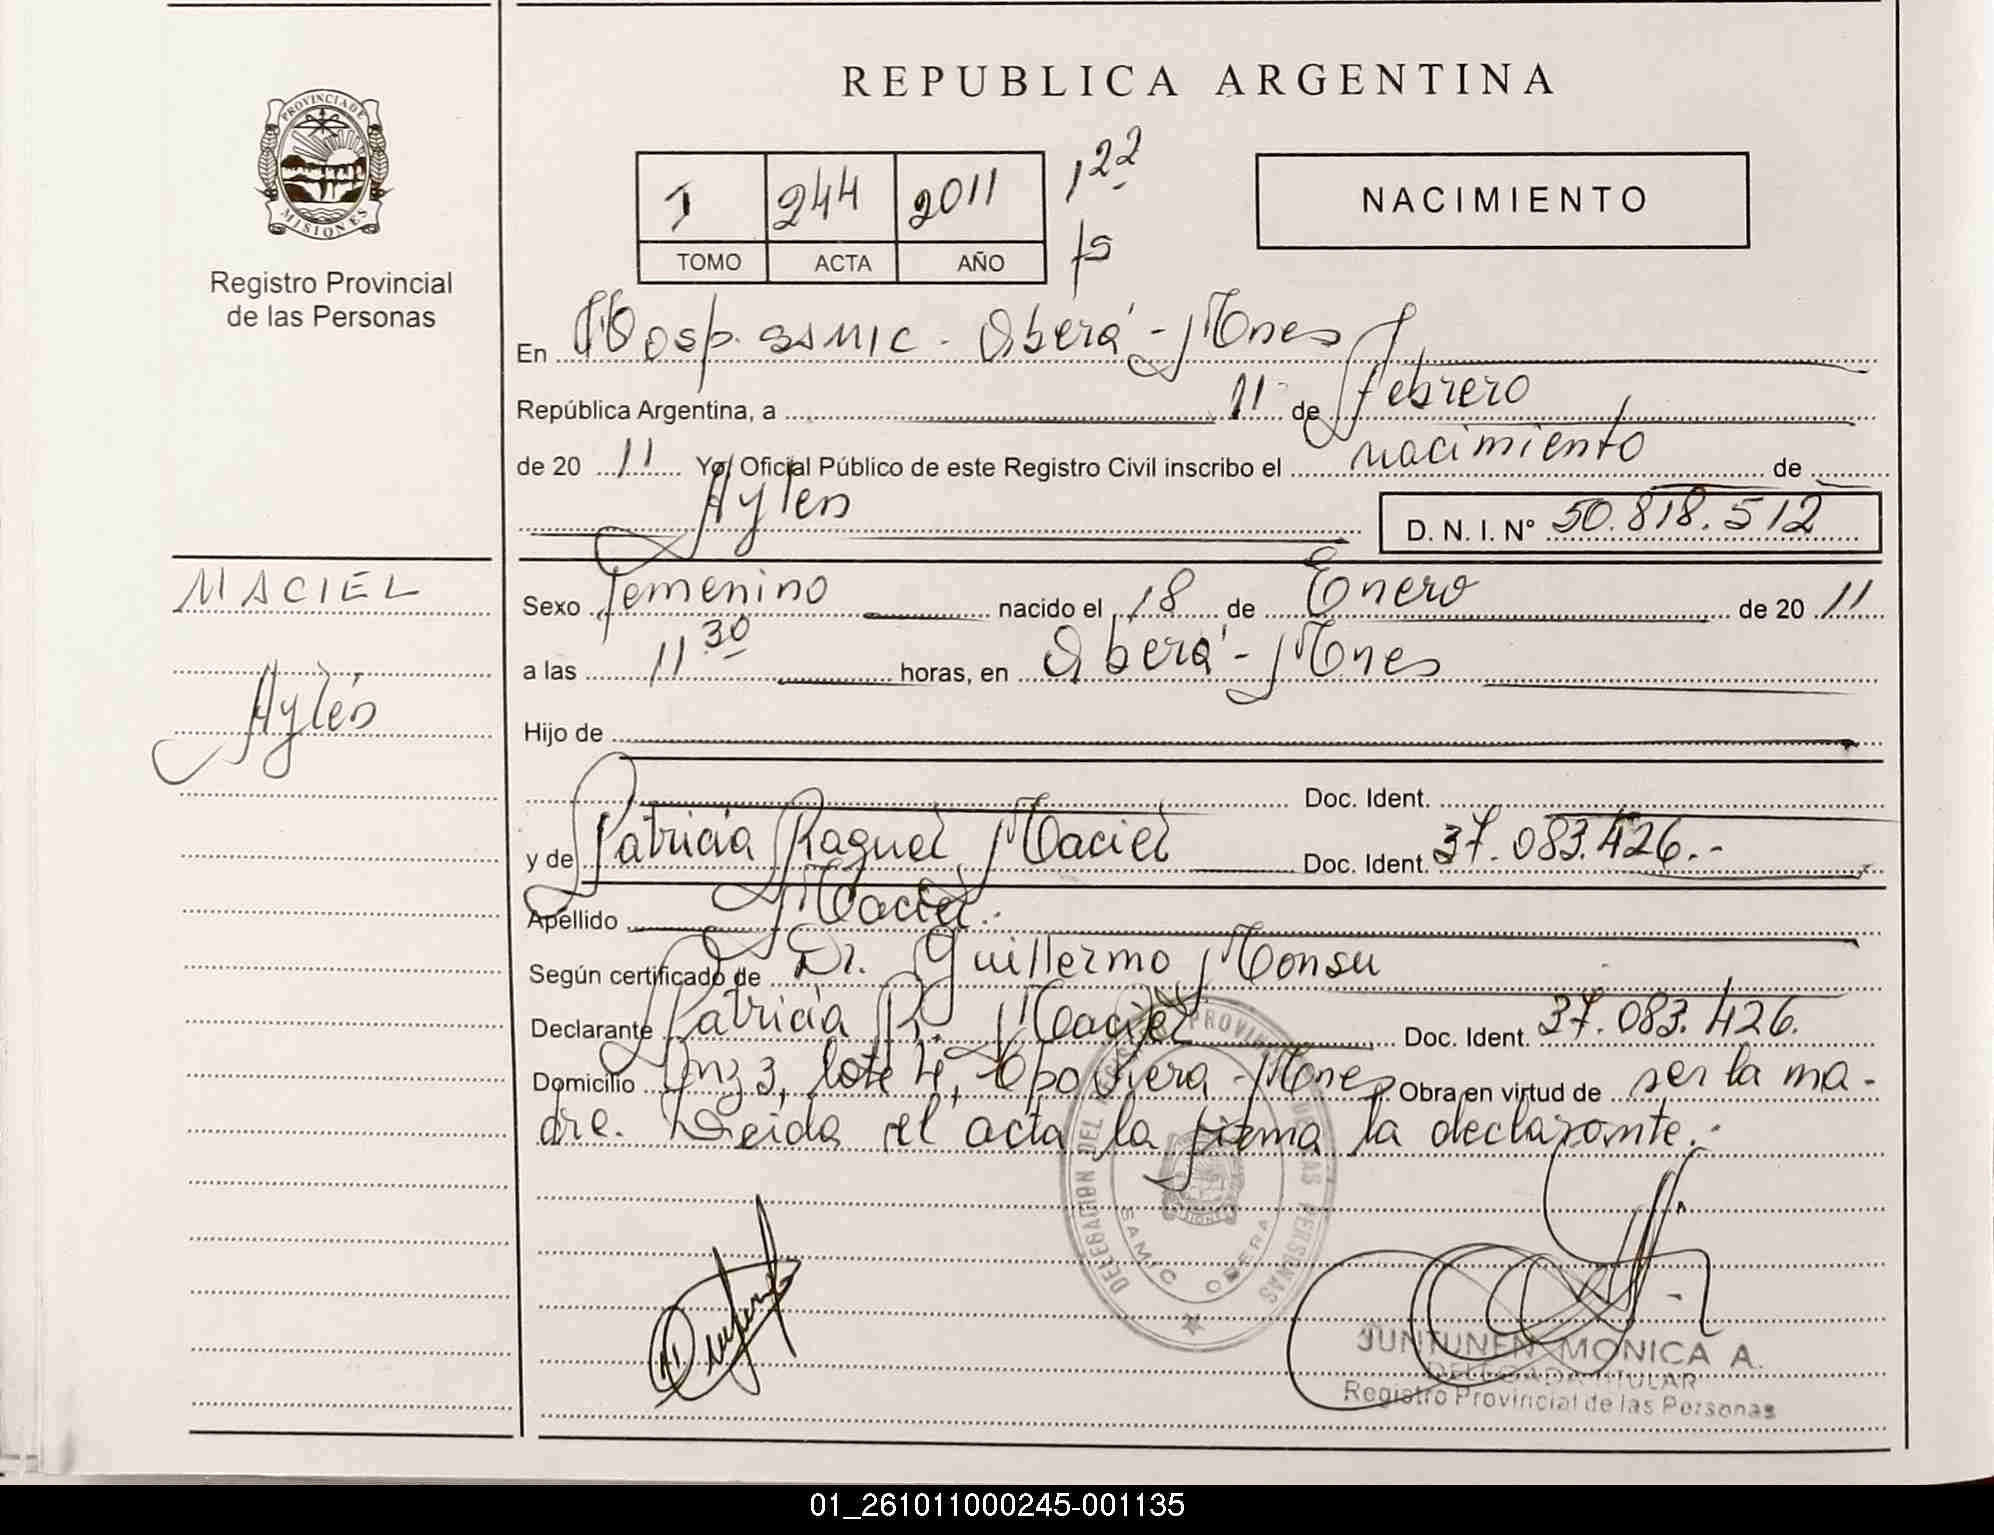 REPUBLICA ARGENTINA
PROVINCIA DE
MISIONES
Registro Provincial
de las Personas
I 244 2011 122
TOMO ACTA AÑO fs
NACIMIENTO
En Hosp. SAMIC - Oberá - Mnes
República Argentina, a 11 de febrero
de 20 11 Yo, Oficial Público de este Registro Civil inscribo el nacimiento de
Aylén
D. N. I. Nº 50.818.512
MACIEL
Aylén
Sexo Femenino nacido el 18 de Enero de 20 11
a las 11 30 horas, en Oberá - Mnes
Hijo de
Doc. Ident.
y de Patricia Raquel Maciel Doc. Ident. 37.083.426.-
Apellido Maciel.-
Según certificado de Dr. Guillermo Monsu
Declarante Patricia R. Maciel Doc. Ident. 37.083.426.
Domicilio Mz 3, lote 4, Cpo Viera - Mnes Obra en virtud de ser la ma-
dre. Leida el acta la firma la declarante.-
DELEGACION DEL REGISTRO PROVINCIAL DE LAS PERSONAS
SAMIC OBERA
JUNTUNEN MONICA A.
DELEGADA TITULAR
Registro Provincial de las Personas
01_261011000245-001135